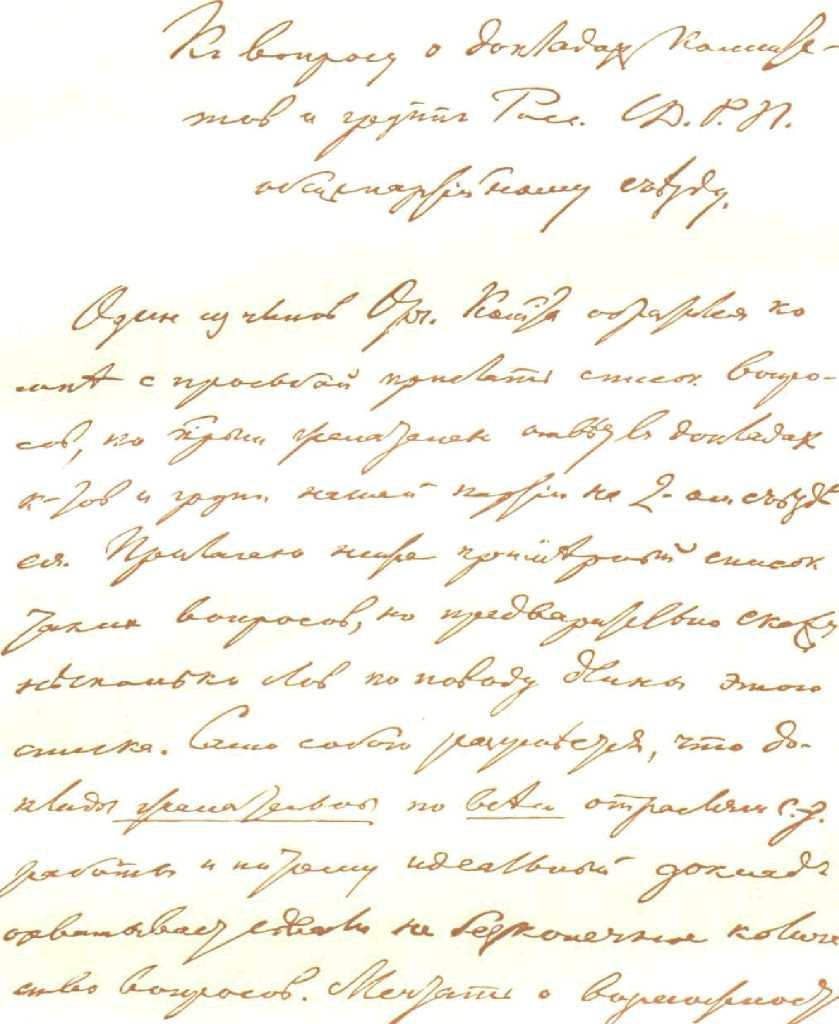 Къ вопросу о докладах комите-
тов и групп Росс. С.Д.Р.П.
общепартийному съѣзду.
Один из членов Орг. Ком-та обратился ко
мнѣ с просьбой прислать список вопро-
сов, на к-рые желателен отвѣт в докладах
к-тов и групп нашей партии на 2-ом съѣздѣ
ея. Прилагаю ниже примѣрный список
таких вопросов, но предварительно скажу
нѣсколько слов по поводу длины этого
списка. Само собою разумѣется, что до-
клады желательны по всѣм отраслям с.-д.
работы и потому идеальный доклад
охватывает едва ли не безконечное количе
ство вопросов. Мечтать о возможности